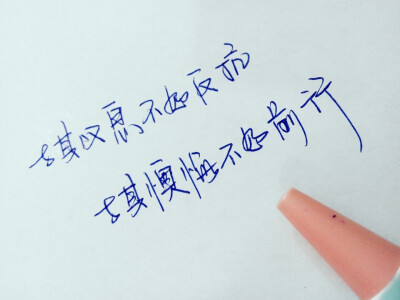 与其叹息不如反抗
与其懊悔不如前行